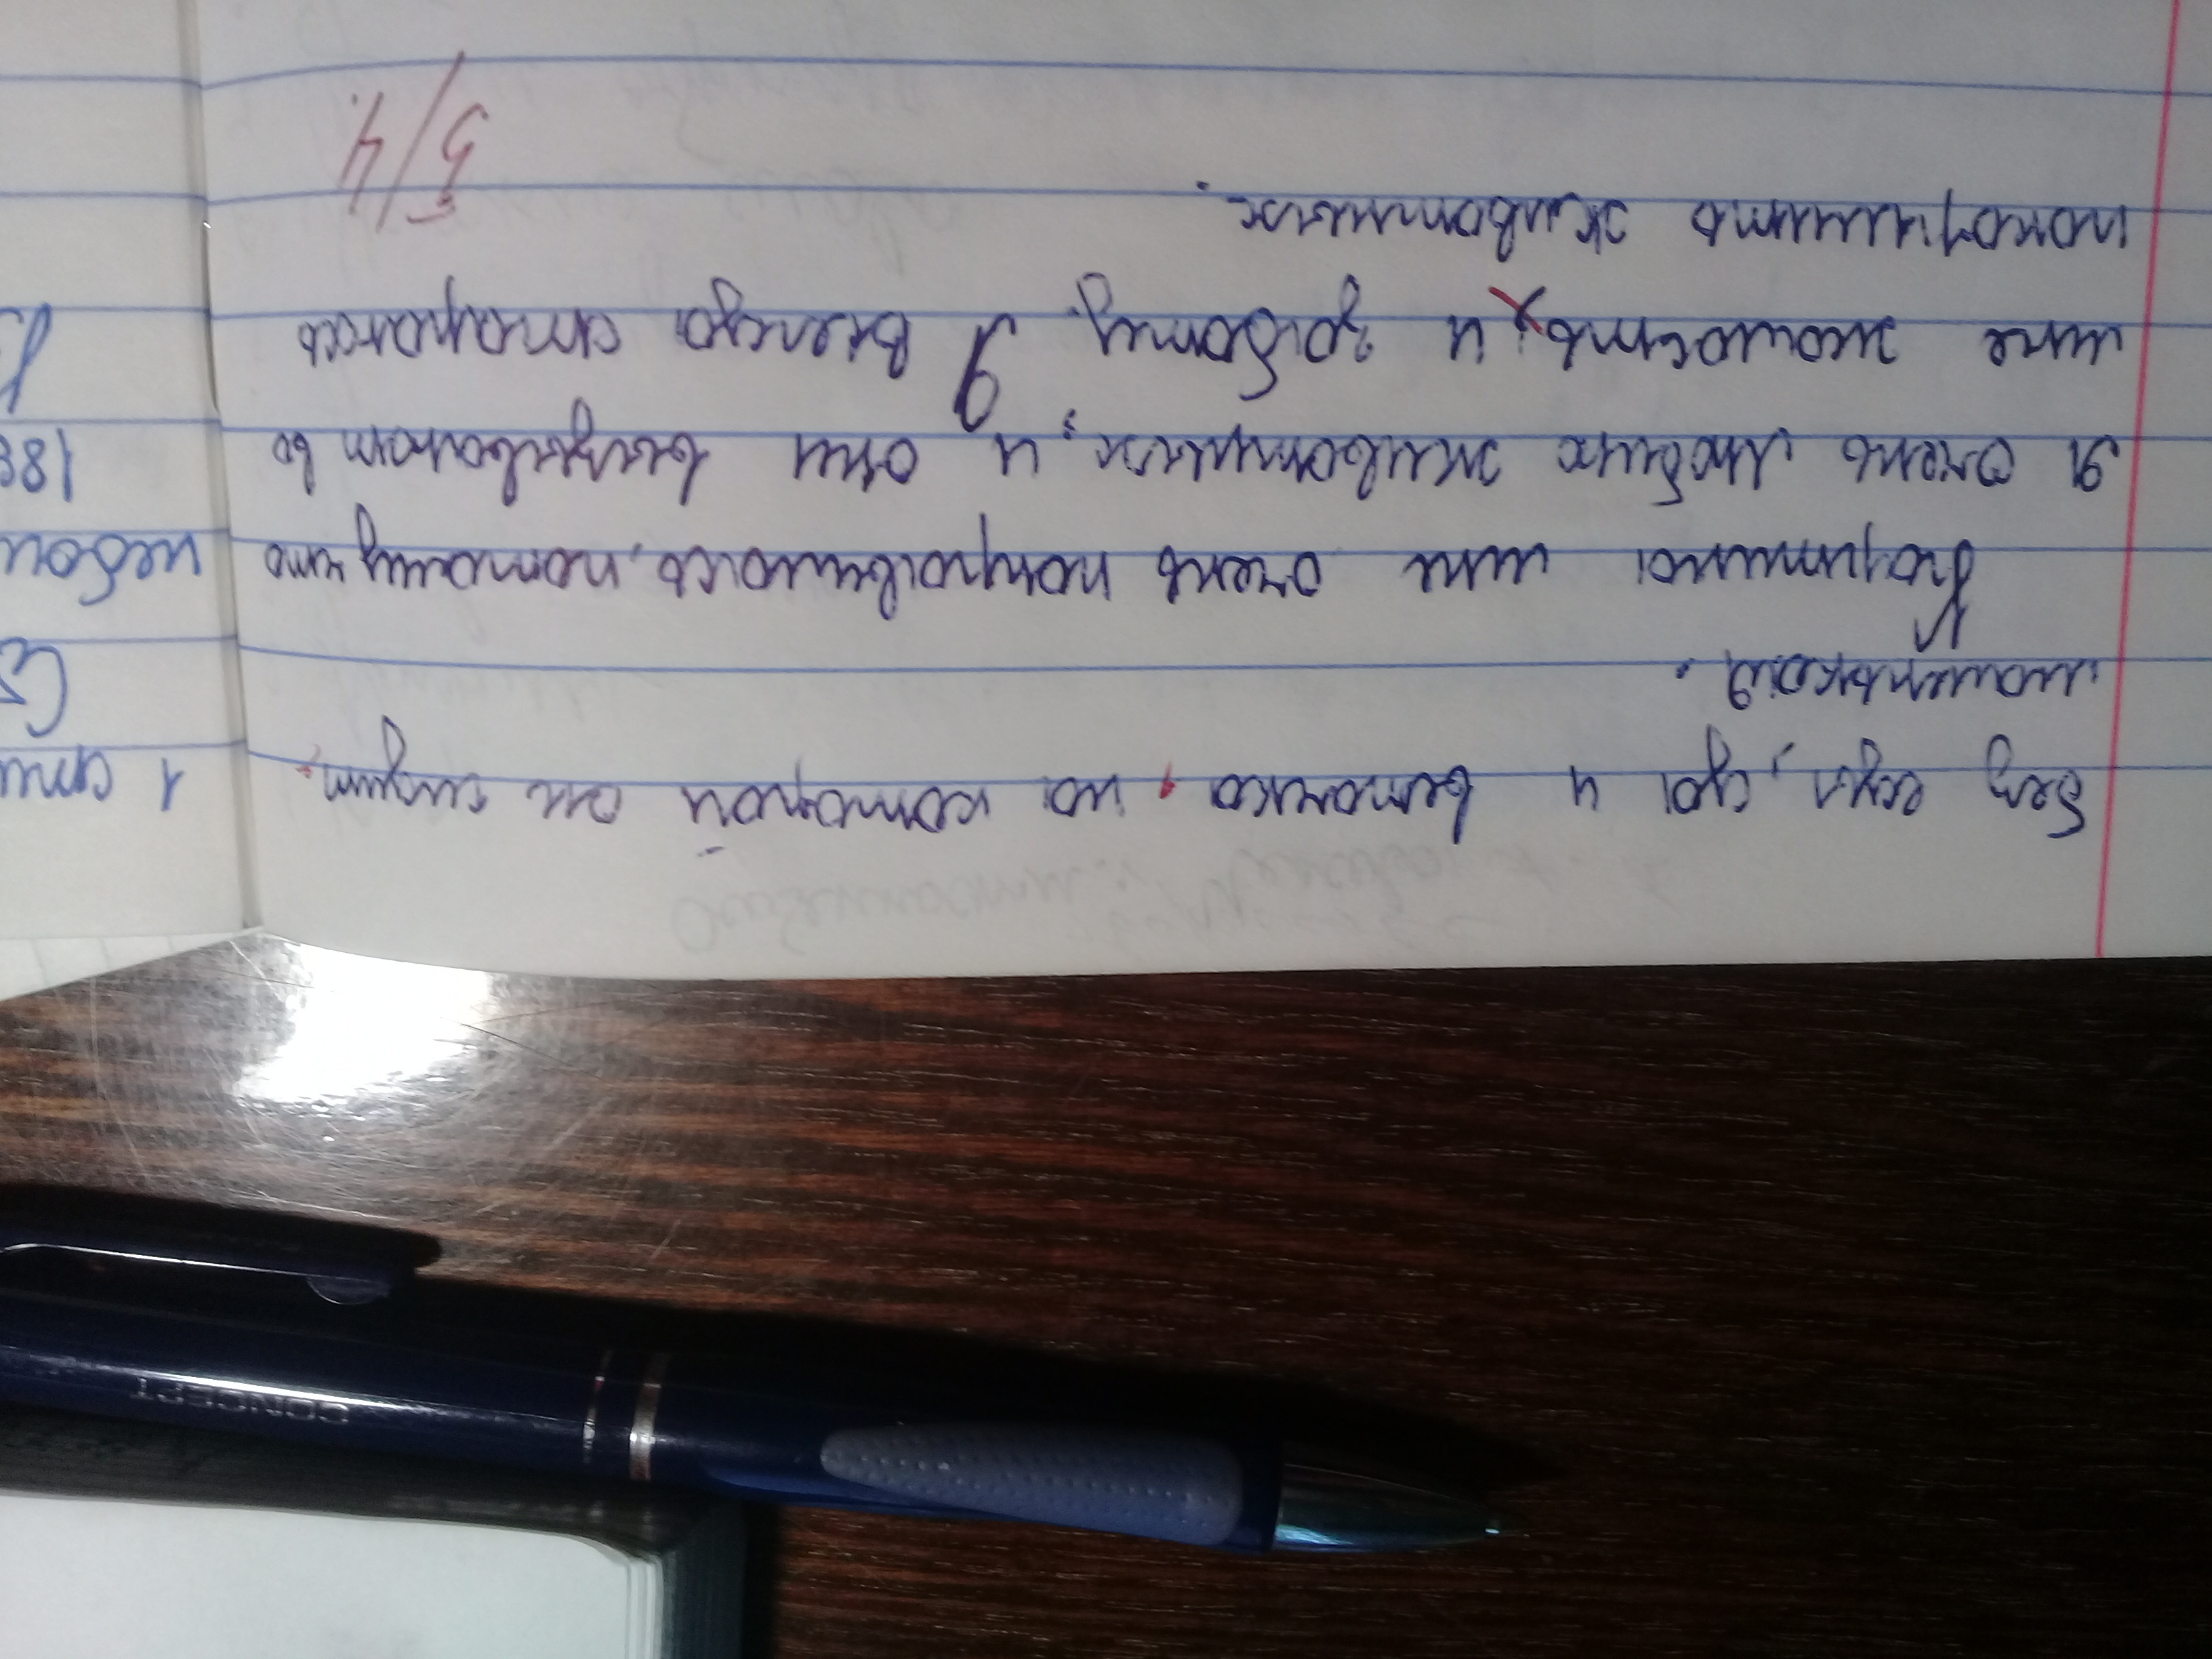 без еды, да и веточка, на которой он сидит,
маленькая.
Картина мне очень понравилась, потому что
я очень люблю животных, и они вызывают во
мне жалость и заботу. Я всегда стараюсь
покормить животных.
5/4
1 сти
небол
CONCEPT